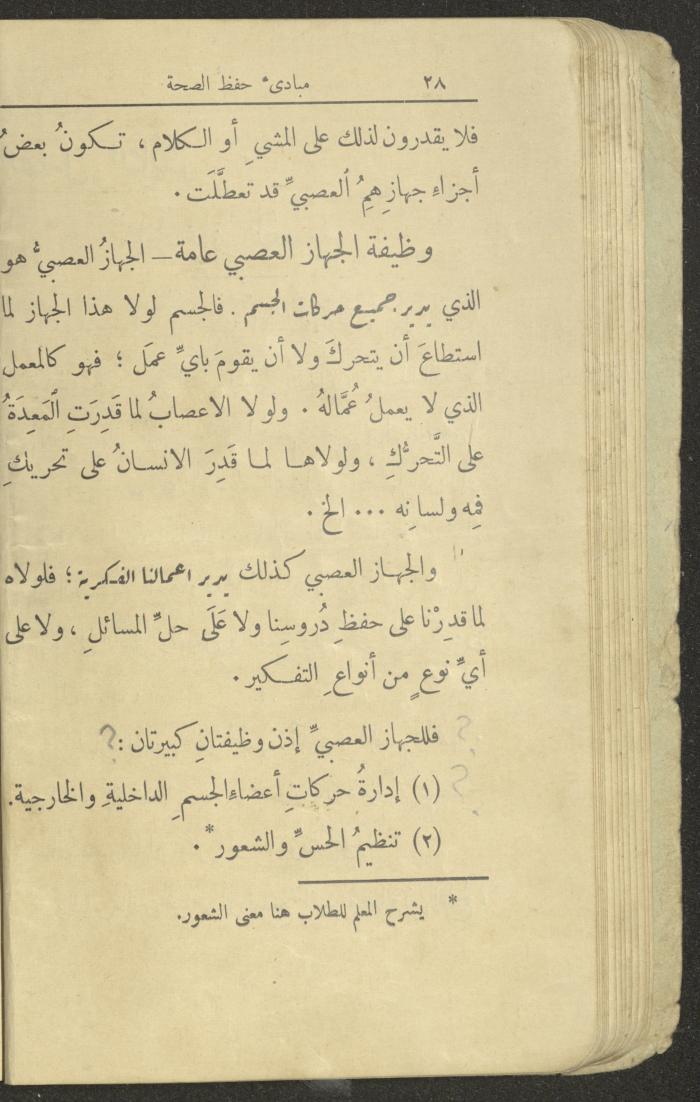 ٢٨ مبادىء حفظ الصحة
فلا يقدرون لذلك على المشيِ أو الكلام ، تكونُ بعضُ
أجزاءِ جهازِهِمُ ٱلعصبيِّ قد تعطَّلَت .
وظيفة الجهاز العصبي عامة – الجهازُ العصبيُّ هو
الذي يدير جميع حركات الجسم . فالجسم لولا هذا الجهاز لما
استطاعَ أن يتحركَ ولا أن يقومَ بايِّ عمَل ؛ فهو كالمعمل
الذي لا يعملُ عُمَّالهُ . ولولا الاعصابُ لما قَدِرَتِ ٱلْمَعِدَةُ
على التَّحرُّكِ ، ولولاها لما قَدِرَ الانسانُ على تحريكِ
فِمِه ولسانِه ... الخ .
والجهاز العصبي كذلك يدير اعمالنا الفكرية ؛ فلولاه
لما قدِرْنا على حفظِ دُروسِنا ولا عَلَى حلِّ المسائلِ ، ولا على
أيِّ نوعٍ من أنواعِ التفكير .
فللجهاز العصبيِّ إذن وظيفتانِ كبيرتان : ?
(١) إدارةُ حركاتِ أعضاءِ الجسمِ الداخليةِ والخارجية .
(٢) تنظيمُ الحسِّ والشعور* .
* يشرح المعلم للطلاب هنا معنى الشعور.